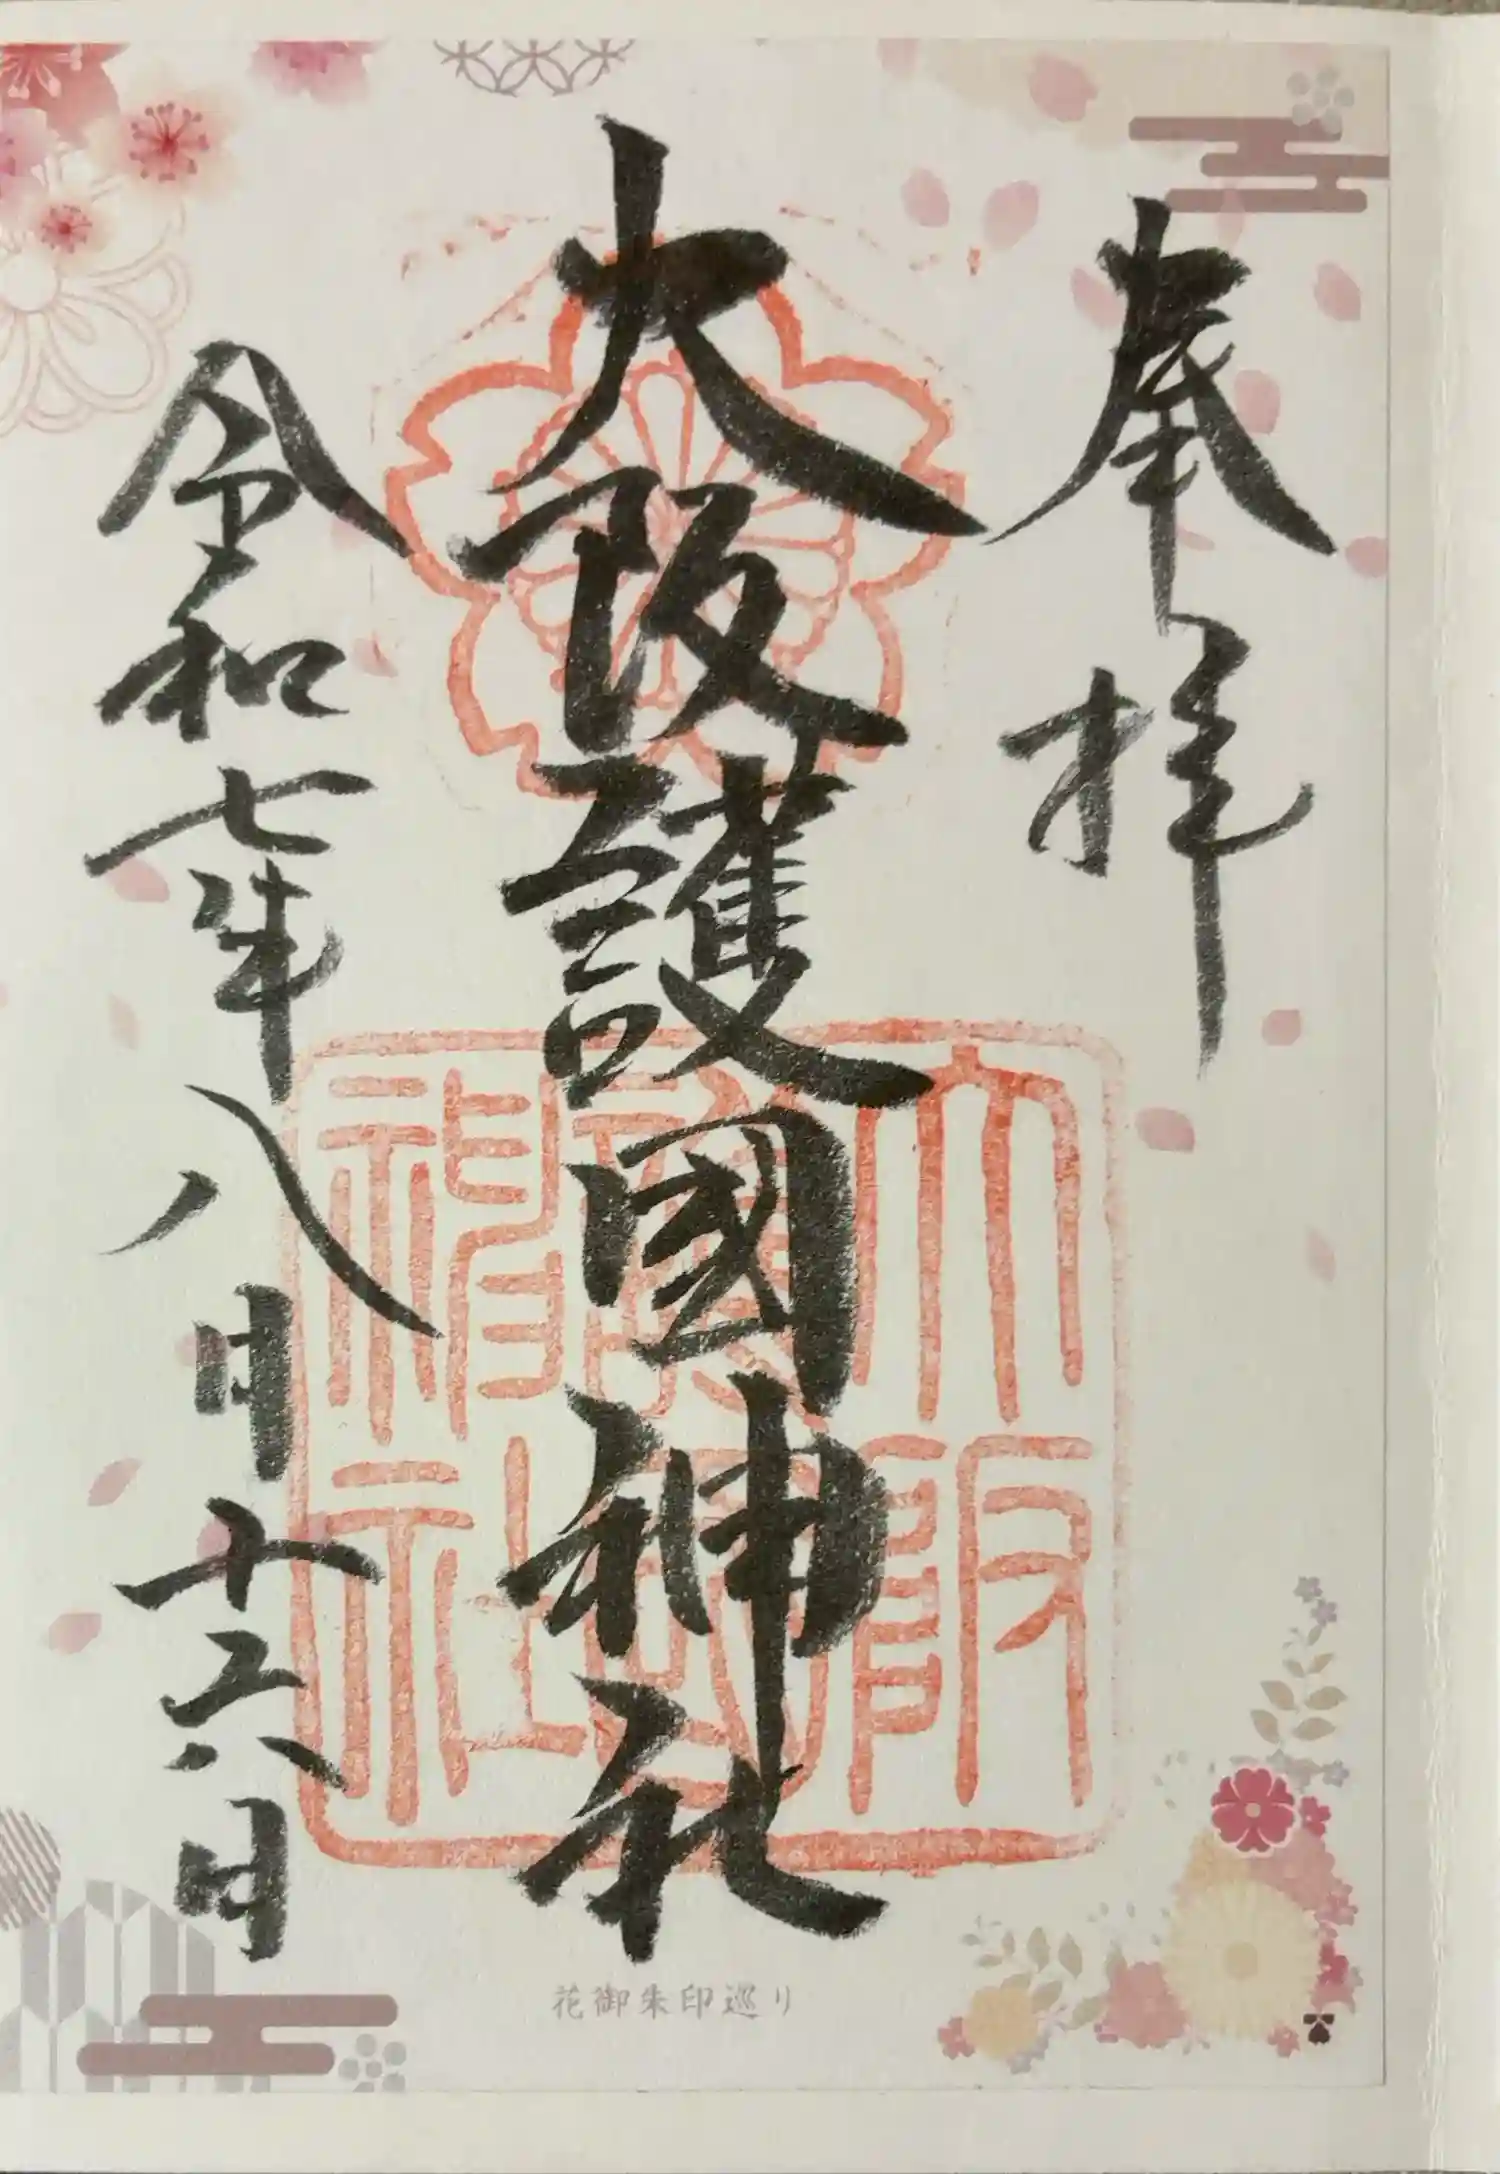 奉拝
大阪護國神社
大阪護國神社
令和七年八月十六日
花御朱印巡り